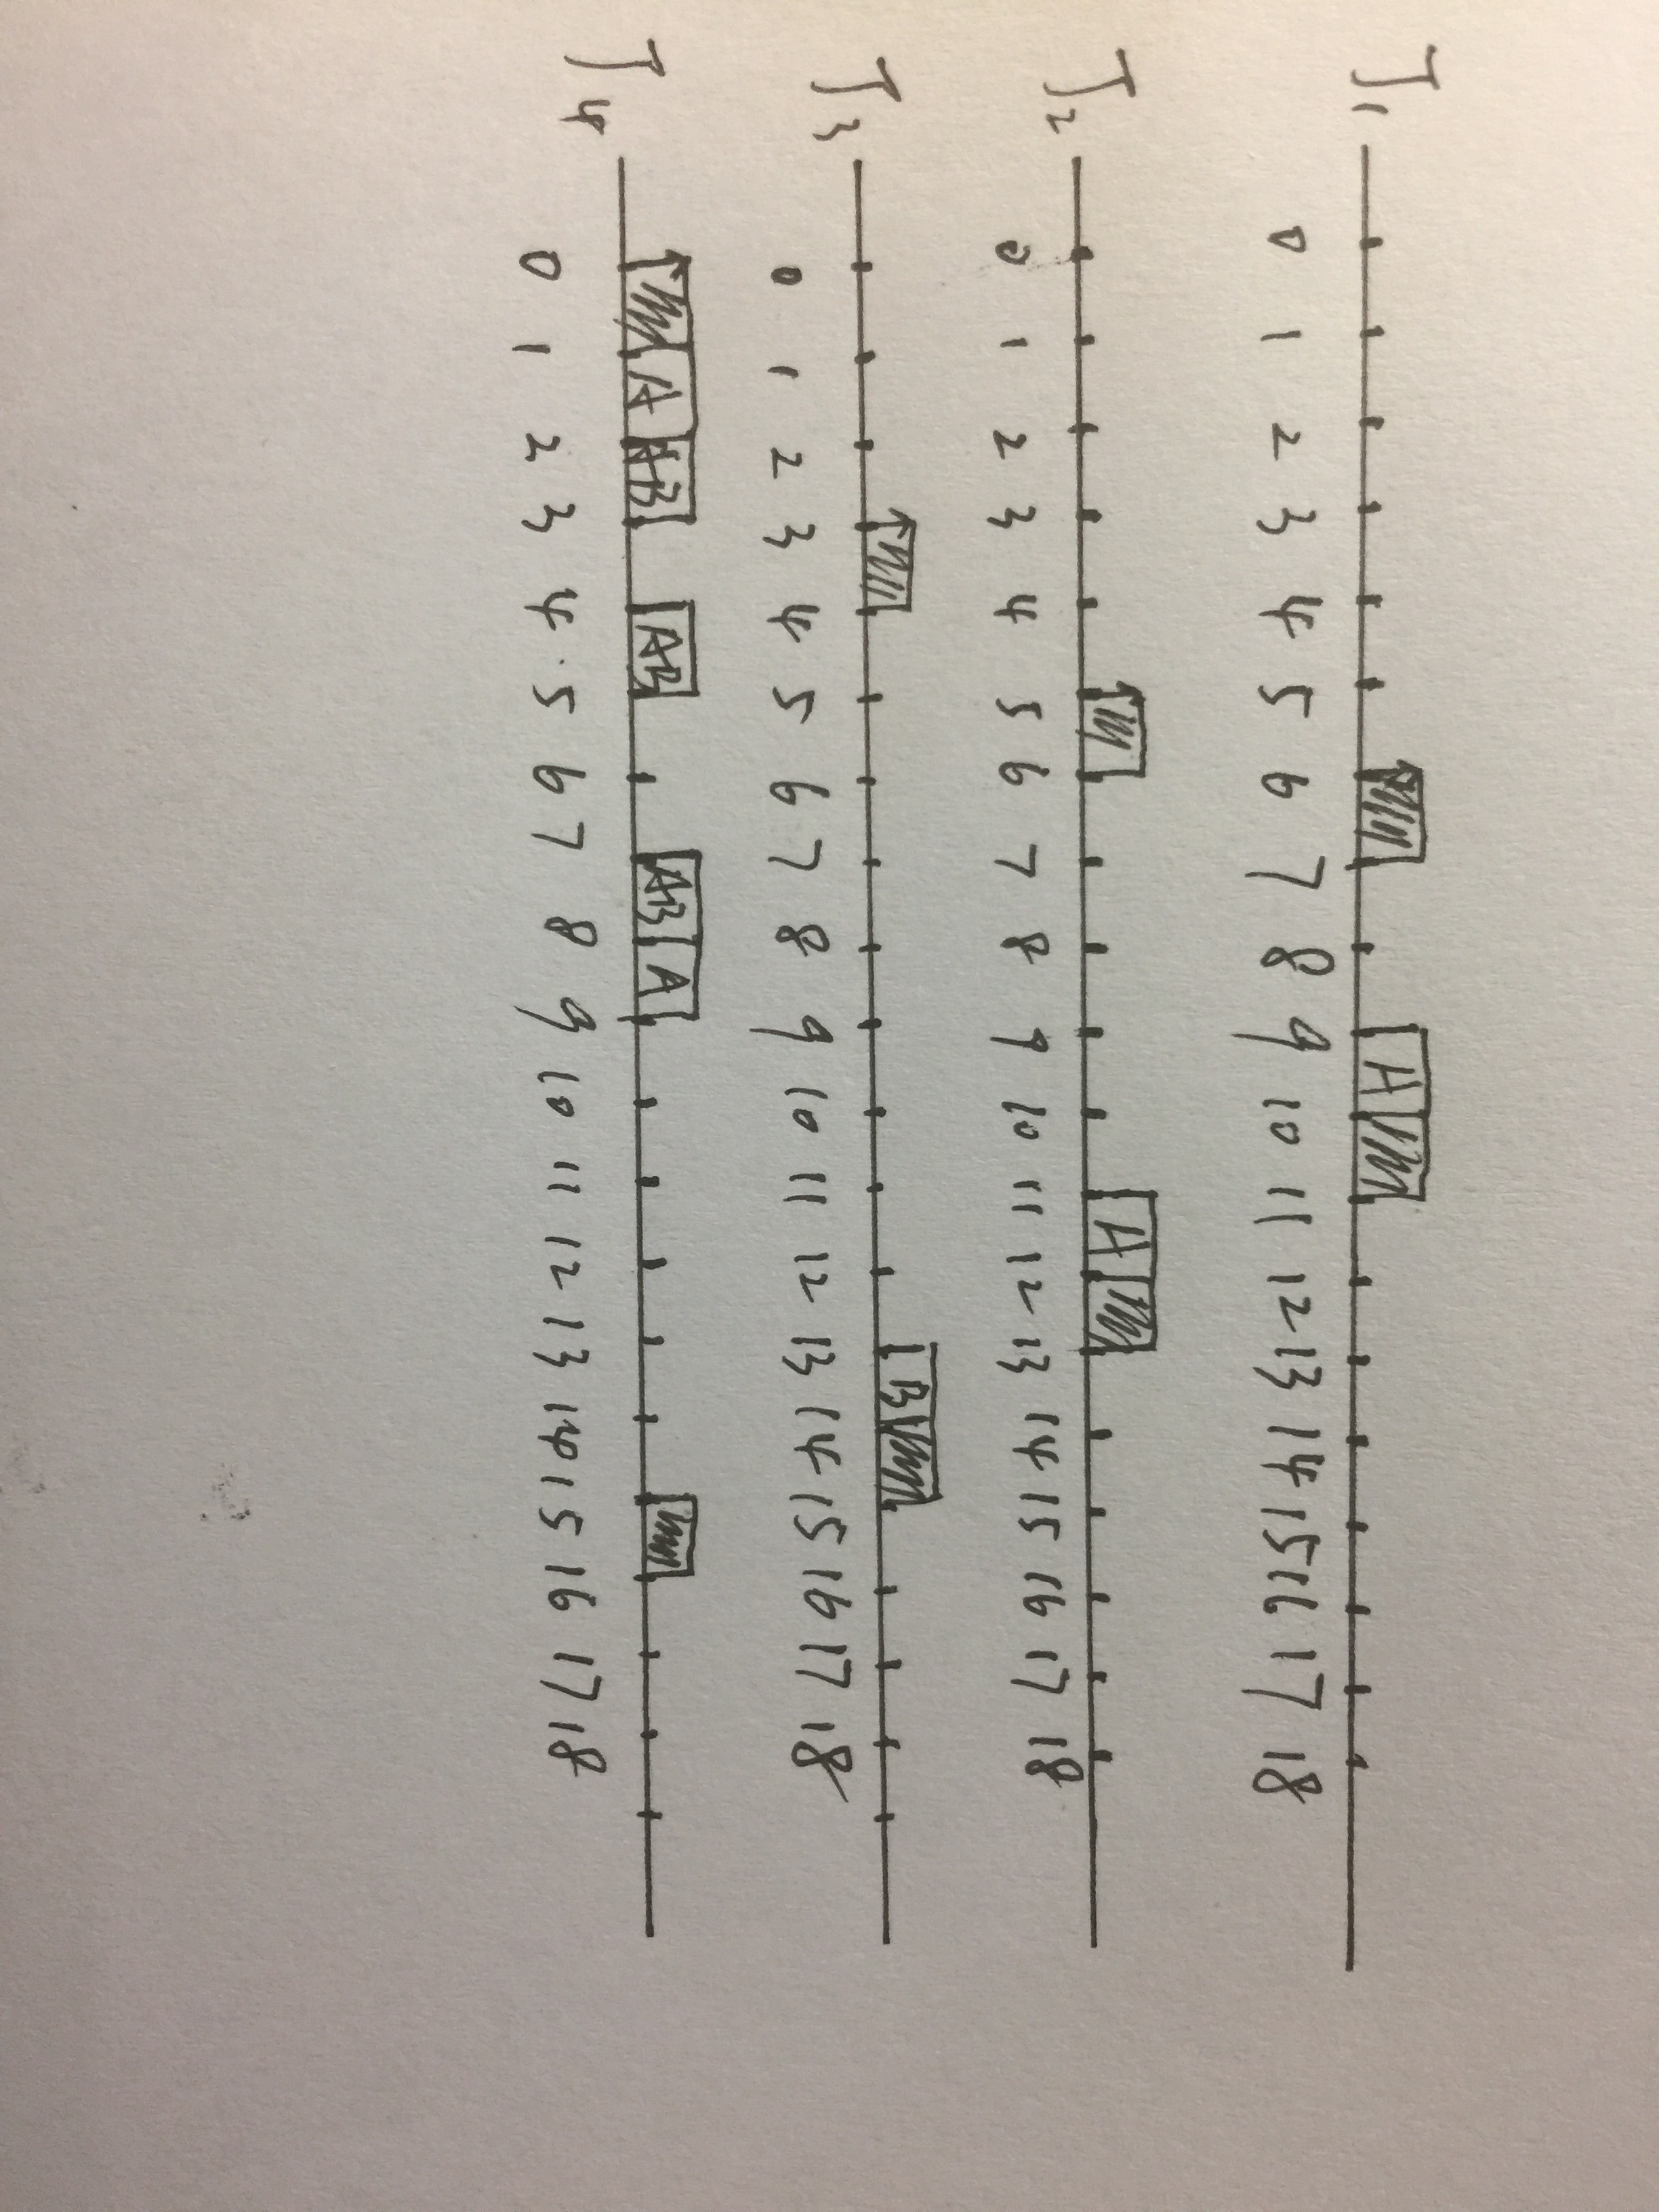 J1
A
0 1 2 3 4 5 6 7 8 9 10 11 12 13 14 15 16 17 18
J2
A
0 1 2 3 4 5 6 7 8 9 10 11 12 13 14 15 16 17 18
J3
B
0 1 2 3 4 5 6 7 8 9 10 11 12 13 14 15 16 17 18
J4
A AB AB AB A
0 1 2 3 4 5 6 7 8 9 10 11 12 13 14 15 16 17 18